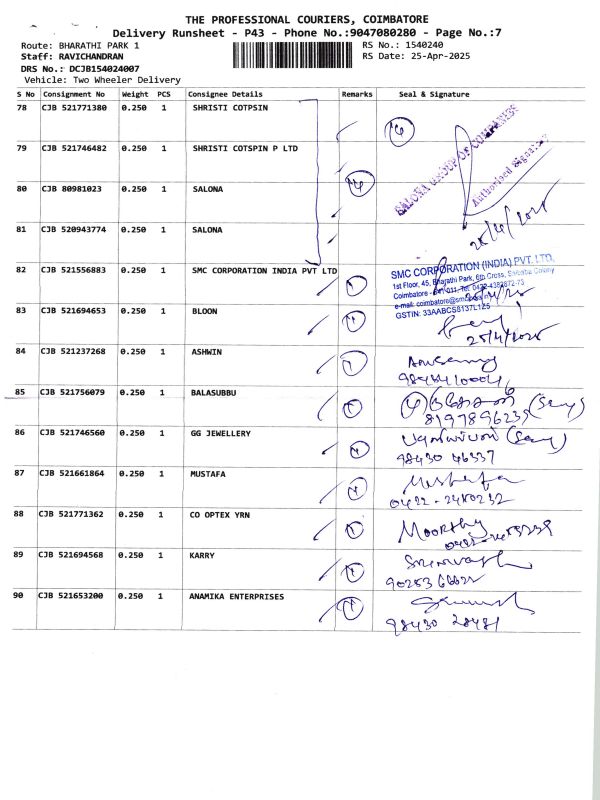 THE PROFESSIONAL COURIERS, COIMBATORE
Delivery Runsheet - P43 - Phone No.:9047080280 - Page No.:7
Route: BHARATHI PARK 1 RS No.: 1540240
Staff: RAVICHANDRAN RS Date: 25-Apr-2025
DRS No.: DCJB154024007
Vehicle: Two Wheeler Delivery
S No Consignment No Weight PCS Consignee Details Remarks Seal & Signature
78 CJB 521771380 0.250 1 SHRISTI COTPSIN
SALONA GROUP OF COMPANIES
Authorised Signatory
79 CJB 521746482 0.250 1 SHRISTI COTSPIN P LTD
80 CJB 80981023 0.250 1 SALONA
81 CJB 520943774 0.250 1 SALONA
25/4/2025
82 CJB 521556883 0.250 1 SMC CORPORATION INDIA PVT LTD
SMC CORPORATION (INDIA) PVT. LTD.
1st Floor, 45, Bharathi Park, 6th Cross, Saibaba Colony
Coimbatore - 641 011, Tel: 0422-4382872-73
GSTIN: 33AABCS8137L1Z5
83 CJB 521694653 0.250 1 BLOON
25/4/2025
84 CJB 521237268 0.250 1 ASHWIN
85 CJB 521756079 0.250 1 BALASUBBU
8197896235
86 CJB 521746560 0.250 1 GG JEWELLERY
98430 46337
87 CJB 521661864 0.250 1 MUSTAFA
Mustafa
0422-2480232
88 CJB 521771362 0.250 1 CO OPTEX YRN
Moorthy
89 CJB 521694568 0.250 1 KARRY
90 CJB 521653200 0.250 1 ANAMIKA ENTERPRISES
98430 28481